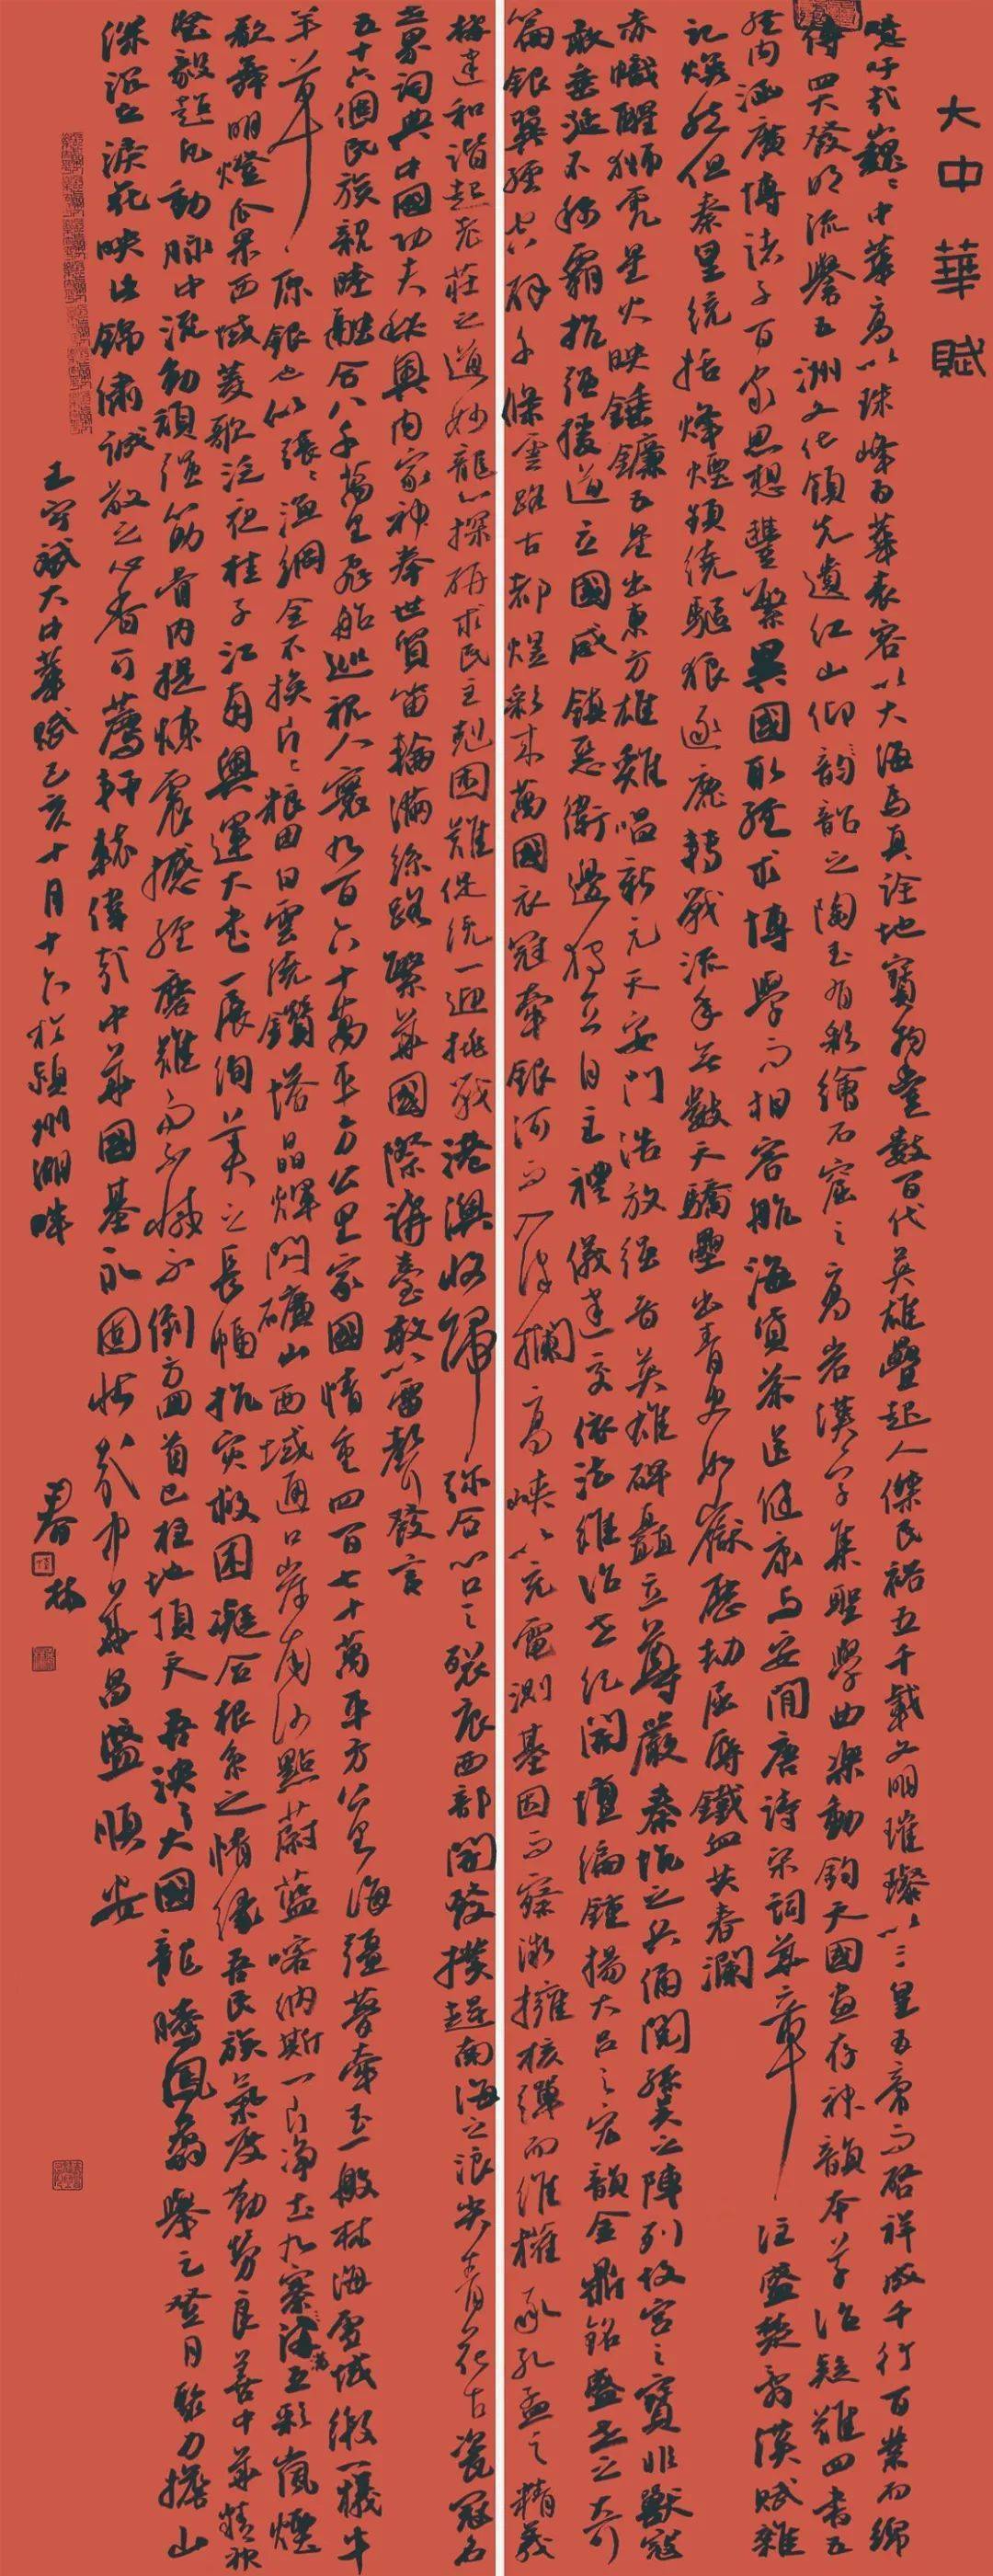 大中華賦
噫吁哉巍巍中華高以珠峰為華表容以大海為真詮地寶物豐數百代英雄疊起人傑民裕五千載文明璀璨以三皇五帝而啟祥成千行百業而綿
傳四大發明流譽五洲文化領先遺江山仰韵韶之陶玉有彩繪石窟之高岩漢字集聖學曲樂動鈞天國畫存神韻本草治疑難四書五
經內涵廣博諸子百家思想豐繁異國取經求博學而相容航海貨茶送健康与安閒唐詩宋詞華章汪盛楚騷漢賦雜
記煥然但秦皇統括烽煙頻繞驅狼逐鹿轉戰流年無數天驕疊出青史如嶽歷劫屈辱鐵血共春瀾
赤幟醒獅亮星火映錘鐮五星出東方雄雞唱新元天安門浩放強音英雄碑矗立尊嚴秦坑之兵俑閱孫吳之陣列故宮之寶非獸寇
敢垂涎不稱霸抗強援道立國威鎮惡衛邊獨立自主禮儀建交依法維治世紀開壇編鐘揚大呂之宏韻金鼎銘盛世之奇
篇銀翼經雲路古都煜彩來萬國衣冠牽銀河而入澤攔高峽以充電測基因而察微擁核彈而維權承孔孟之精義
搭建和諧起老莊之道妙龍心探研求民主剋困難促統一迎挑戰港澳收歸弥合心口之裂痕西部開發撲趕南海之浪尖青花古瓷冠名
世界詞典中國功夫秘奧內家神拳世貿笛輪滿絲路繁華國際講臺敢以雷聲發言
五十六個民族親睦融合八千萬里飛船巡視人寰九百六十萬平方公里家國情重四百七十萬平方公里海疆夢牽玉一般林海雪域緞一樣牛
羊草原銀也似張張漁網金不換片片糧田白雲繞鑽塔晶輝閃礦山西域通口岸南沙點蔚藍喀納斯一片淨土九寨溝五彩嵐煙
歌舞明燈瓜果西域菱歌泛夜桂子江南奧運大書一展絢美之長幅抗災救困凝合根系之情緣吾民族氣度勤勞良善中華精神
堅毅超凡動脈中流動頑強筋骨內提煉震撼經磨難而不憾不倒方回首已柱地頂天吾泱泱大國龍騰鳳翥舉之登月駿力擔山
深沉之淚花映出錦繡誠敬之心香可薦軒轅偉哉中華國基永固壯哉中華昌盛順安
王守斌大中華賦己亥十月十六於潁州湖畔